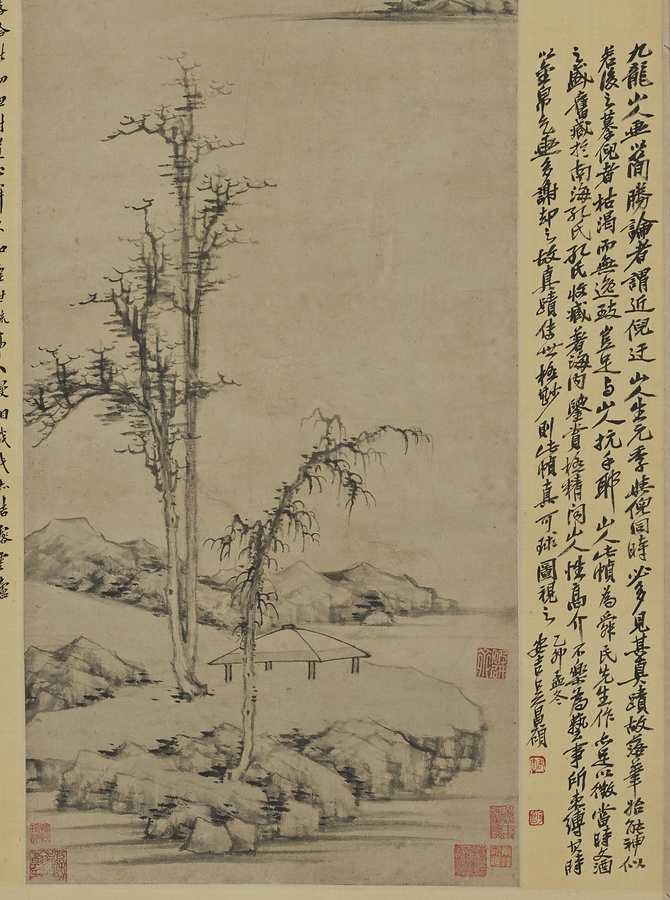 九龍山人画以簡勝論者謂近倪迂山人生元季與倪同時必多見其真蹟故落筆始能神似
若後之摹倪者枯渴而無逸致豈足与山人抗手耶山人此幀為舜民先生作亦足以徵當時文酒
之盛舊藏於南海孔氏孔氏收藏著海内鑒賞極精聞山人性高介不樂為藝事所束縛其時
以金帛乞画多謝却之故真蹟傳世極尠則此幀真可球圖視之
乙卯孟冬
安吉吴昌碩